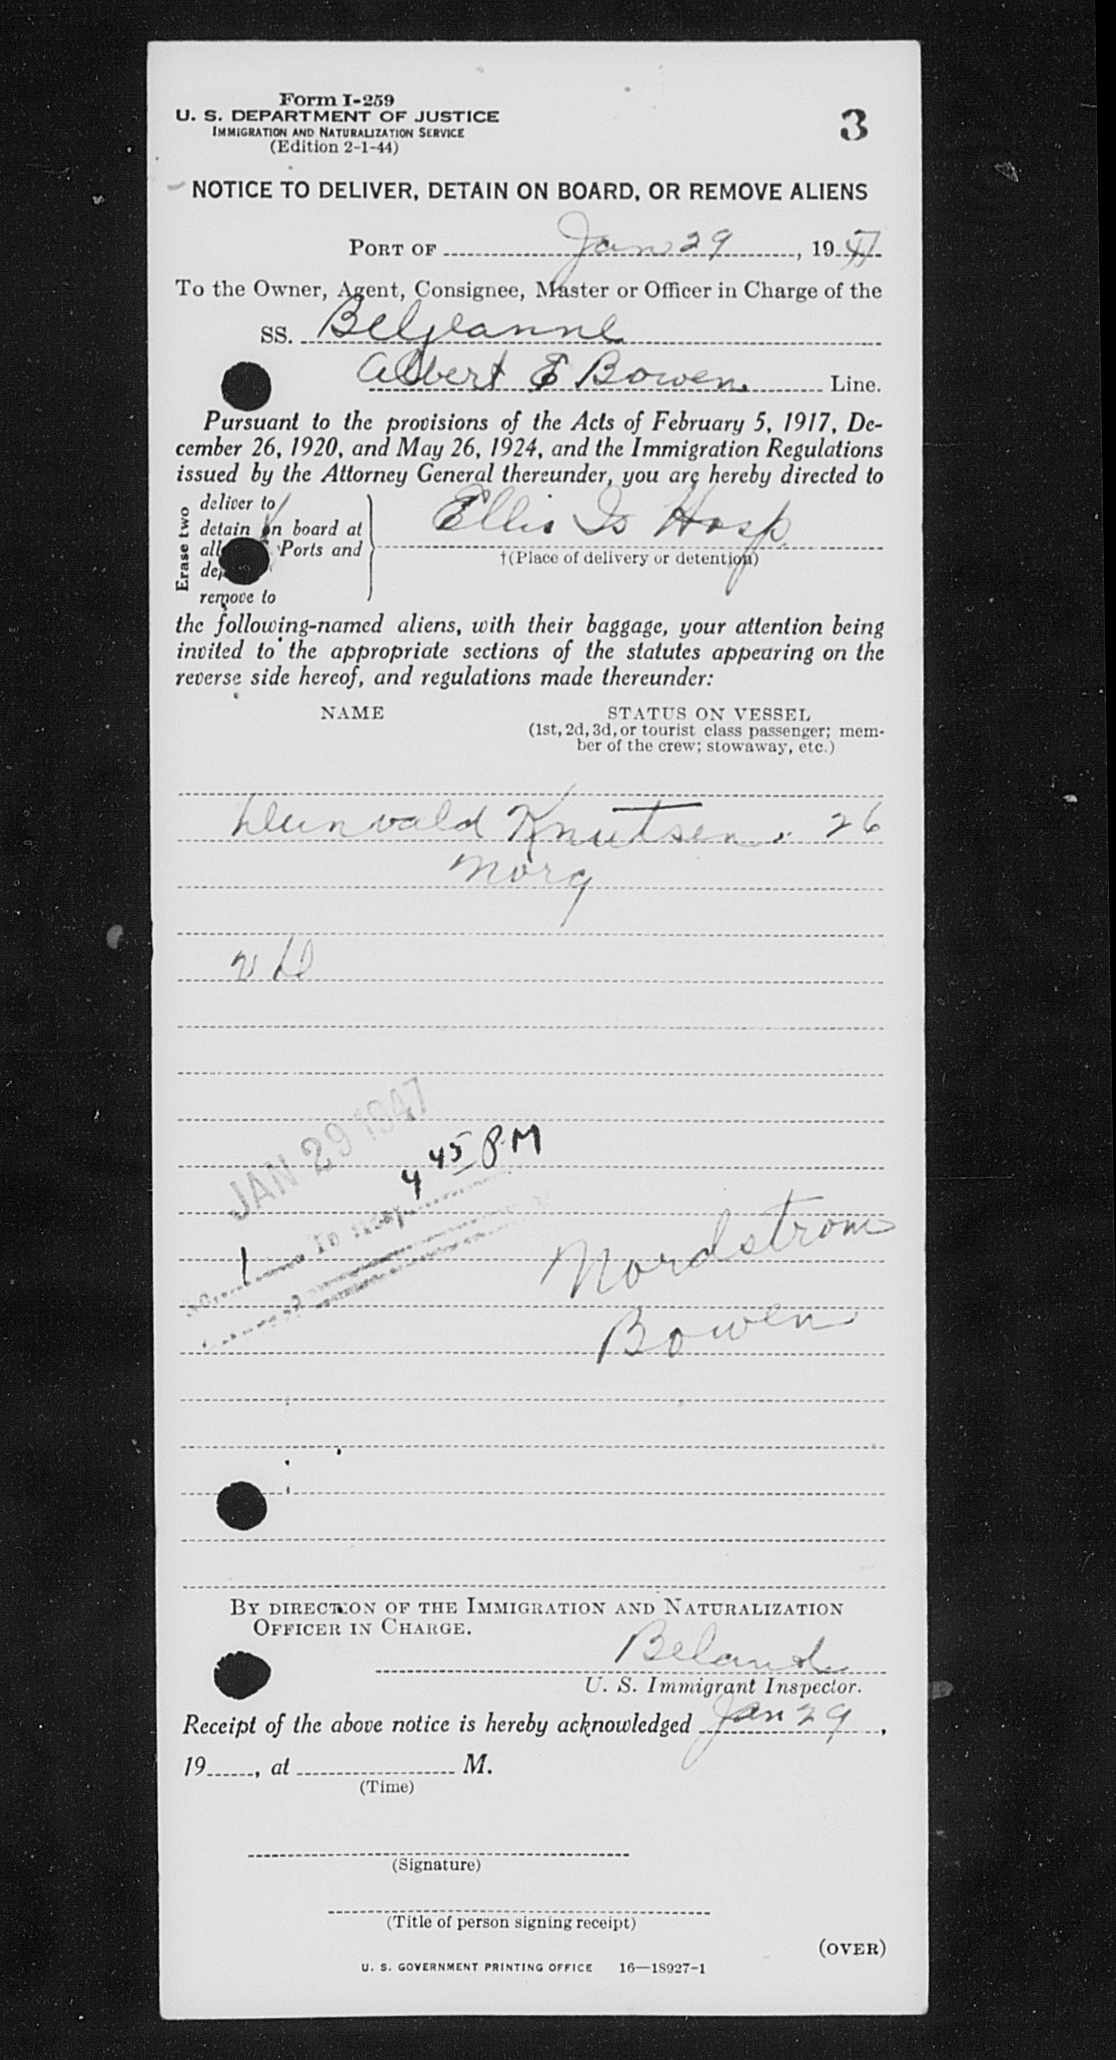 Form I-259
U. S. DEPARTMENT OF JUSTICE
IMMIGRATION AND NATURALIZATION SERVICE
(Edition 2-1-44)
3
NOTICE TO DELIVER, DETAIN ON BOARD, OR REMOVE ALIENS
PORT OF Jan 29, 1947
To the Owner, Agent, Consignee, Master or Officer in Charge of the
SS. Beljeanne
Albert E Bowen Line.
Pursuant to the provisions of the Acts of February 5, 1917, De-
cember 26, 1920, and May 26, 1924, and the Immigration Regulations
issued by the Attorney General thereunder, you are hereby directed to
Erase two
deliver to
detain on board at
all Ports and
remove to
Ellis Is Hosp
†(Place of delivery or detention)
the following-named aliens, with their baggage, your attention being
invited to the appropriate sections of the statutes appearing on the
reverse side hereof, and regulations made thereunder:
NAME
STATUS ON VESSEL
(1st, 2d, 3d, or tourist class passenger; mem-
ber of the crew; stowaway, etc.)
Knutsen 26
Norg
JAN 29 1947
4 45 P.M
1 To Hosp
Nordstrom
Bowen
BY DIRECTION OF THE IMMIGRATION AND NATURALIZATION
OFFICER IN CHARGE.
Beland
U. S. Immigrant Inspector.
Receipt of the above notice is hereby acknowledged Jan 29,
19......, at .................... M.
(Time)
(Signature)
(Title of person signing receipt)
(OVER)
U. S. GOVERNMENT PRINTING OFFICE 16—18927-1